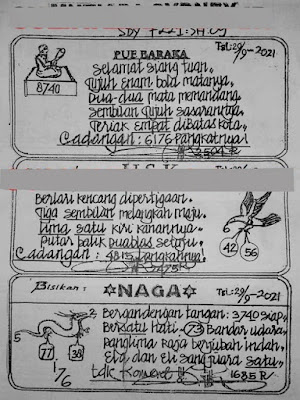 PUE BARAKA
Tgl: 29/9-2021
8740
Selamat siang tuan,
Tujuh Enam bola matanya,
Dua-dua mata memandang
Sembilan Tujuh sasarannya
Teriak Empat dibatas kota,
Cadangan: 6176 Pangkatnya!
Berlari kencang dipertigaan,
Tiga sembilan melangkah maju,
Lima satu kiri kanannya
putar balik setuju,
Cadangan: 4815
42 56
Bisikan:
NAGA
Tgl: 29/9-2021
Bergandengan tangan: 3740 siap,
Bersatu Hati (73) Bandar udara
Panglima Raja berjubah indah
Elo dan Eli sang juara satu,
tdk Komeng
1635 R
77 38
1/6